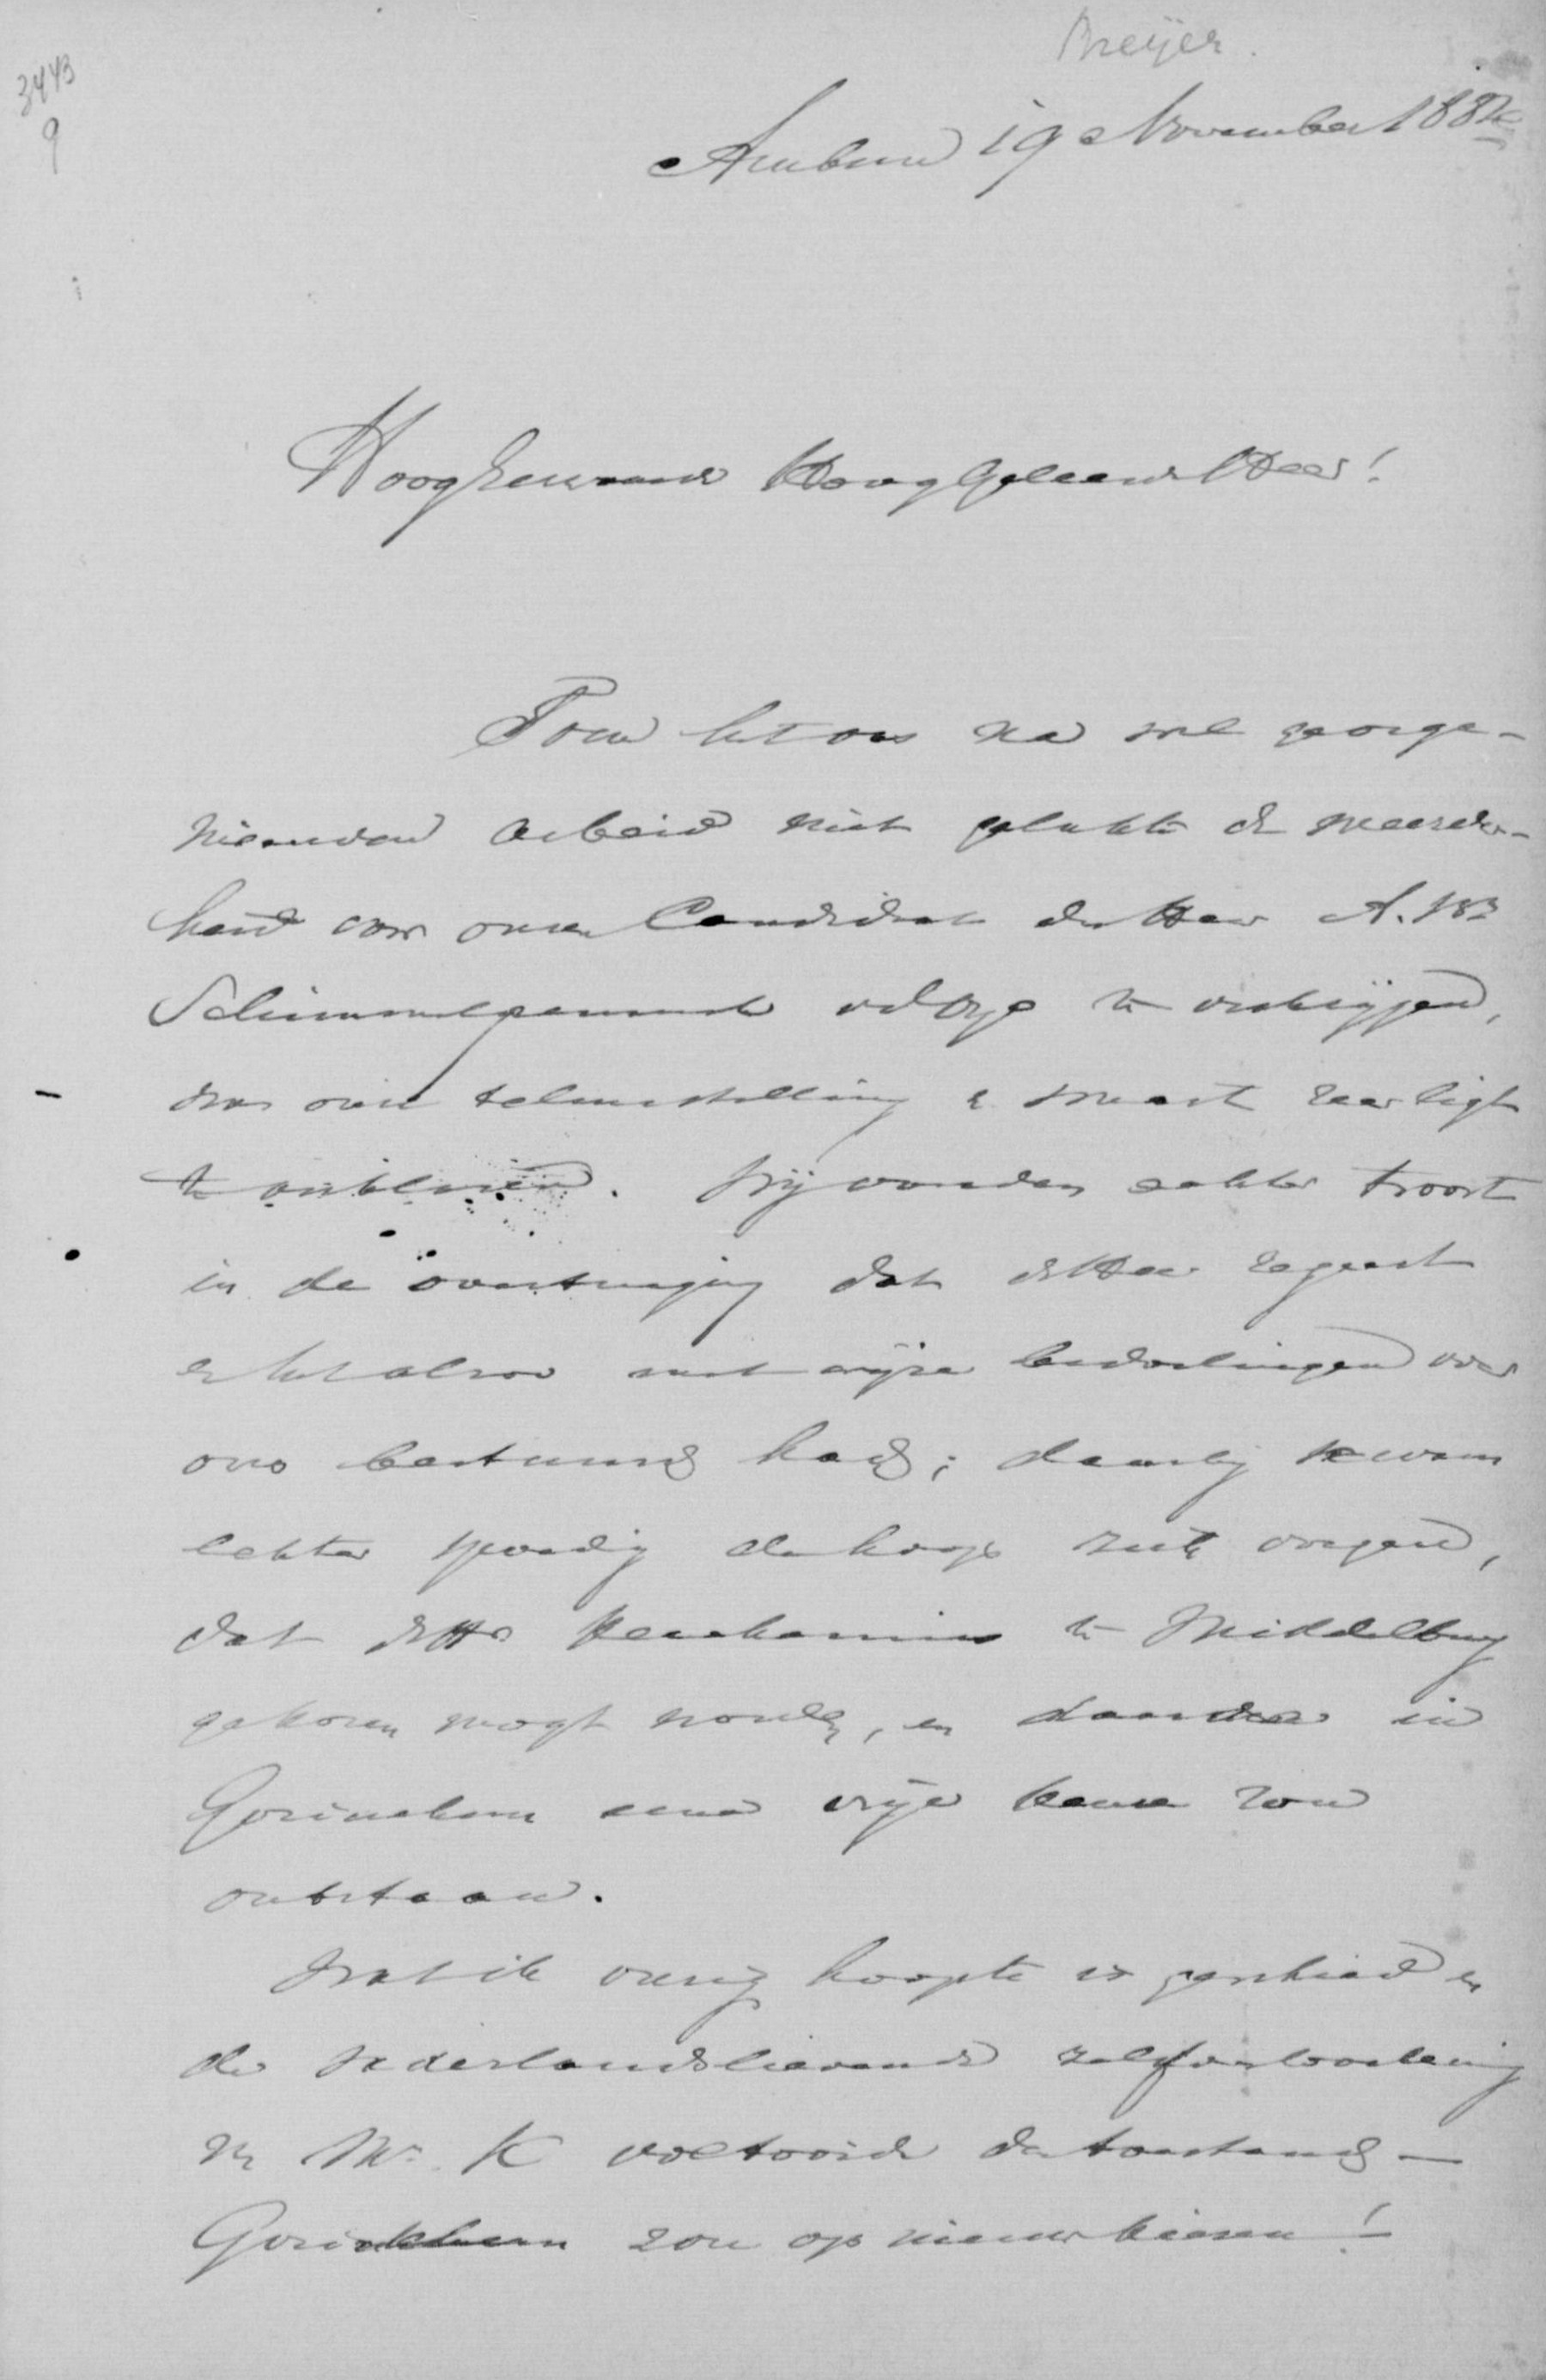 Breijer.
3443
9
Arnhem 19 November 188
HoogEerwaarde Hooggeleerde Heer!
Toen het ons na veel gezorge-
nieuwden arbeid niet gelukte de meerder-
heid voor onzen Candidaat den Heer A. Bn
Schimmelpenninck vd Oye te verkrijgen,
was onze teleurstelling & smart zeer ligt
te verklaren. Wij vonden echter troost
in de overtuiging dat de Heer regeert
& het alzoo met wijze bedoelingen over
ons bestuurd had; daarbij kwam
echter spoedig de hoop zich voegen,
dat de Hr Keuchenius te Middelburg
gekozen mogt worden, en daardoor in
Gorinchem eene vrije keuze zou
ontstaan.
Wat ik vurig hoopte is geschied en
de vaderlandslievende zelfverloochening
van Mr. K voltooide den toestand —
Gorinchem zou op nieuw kiezen!